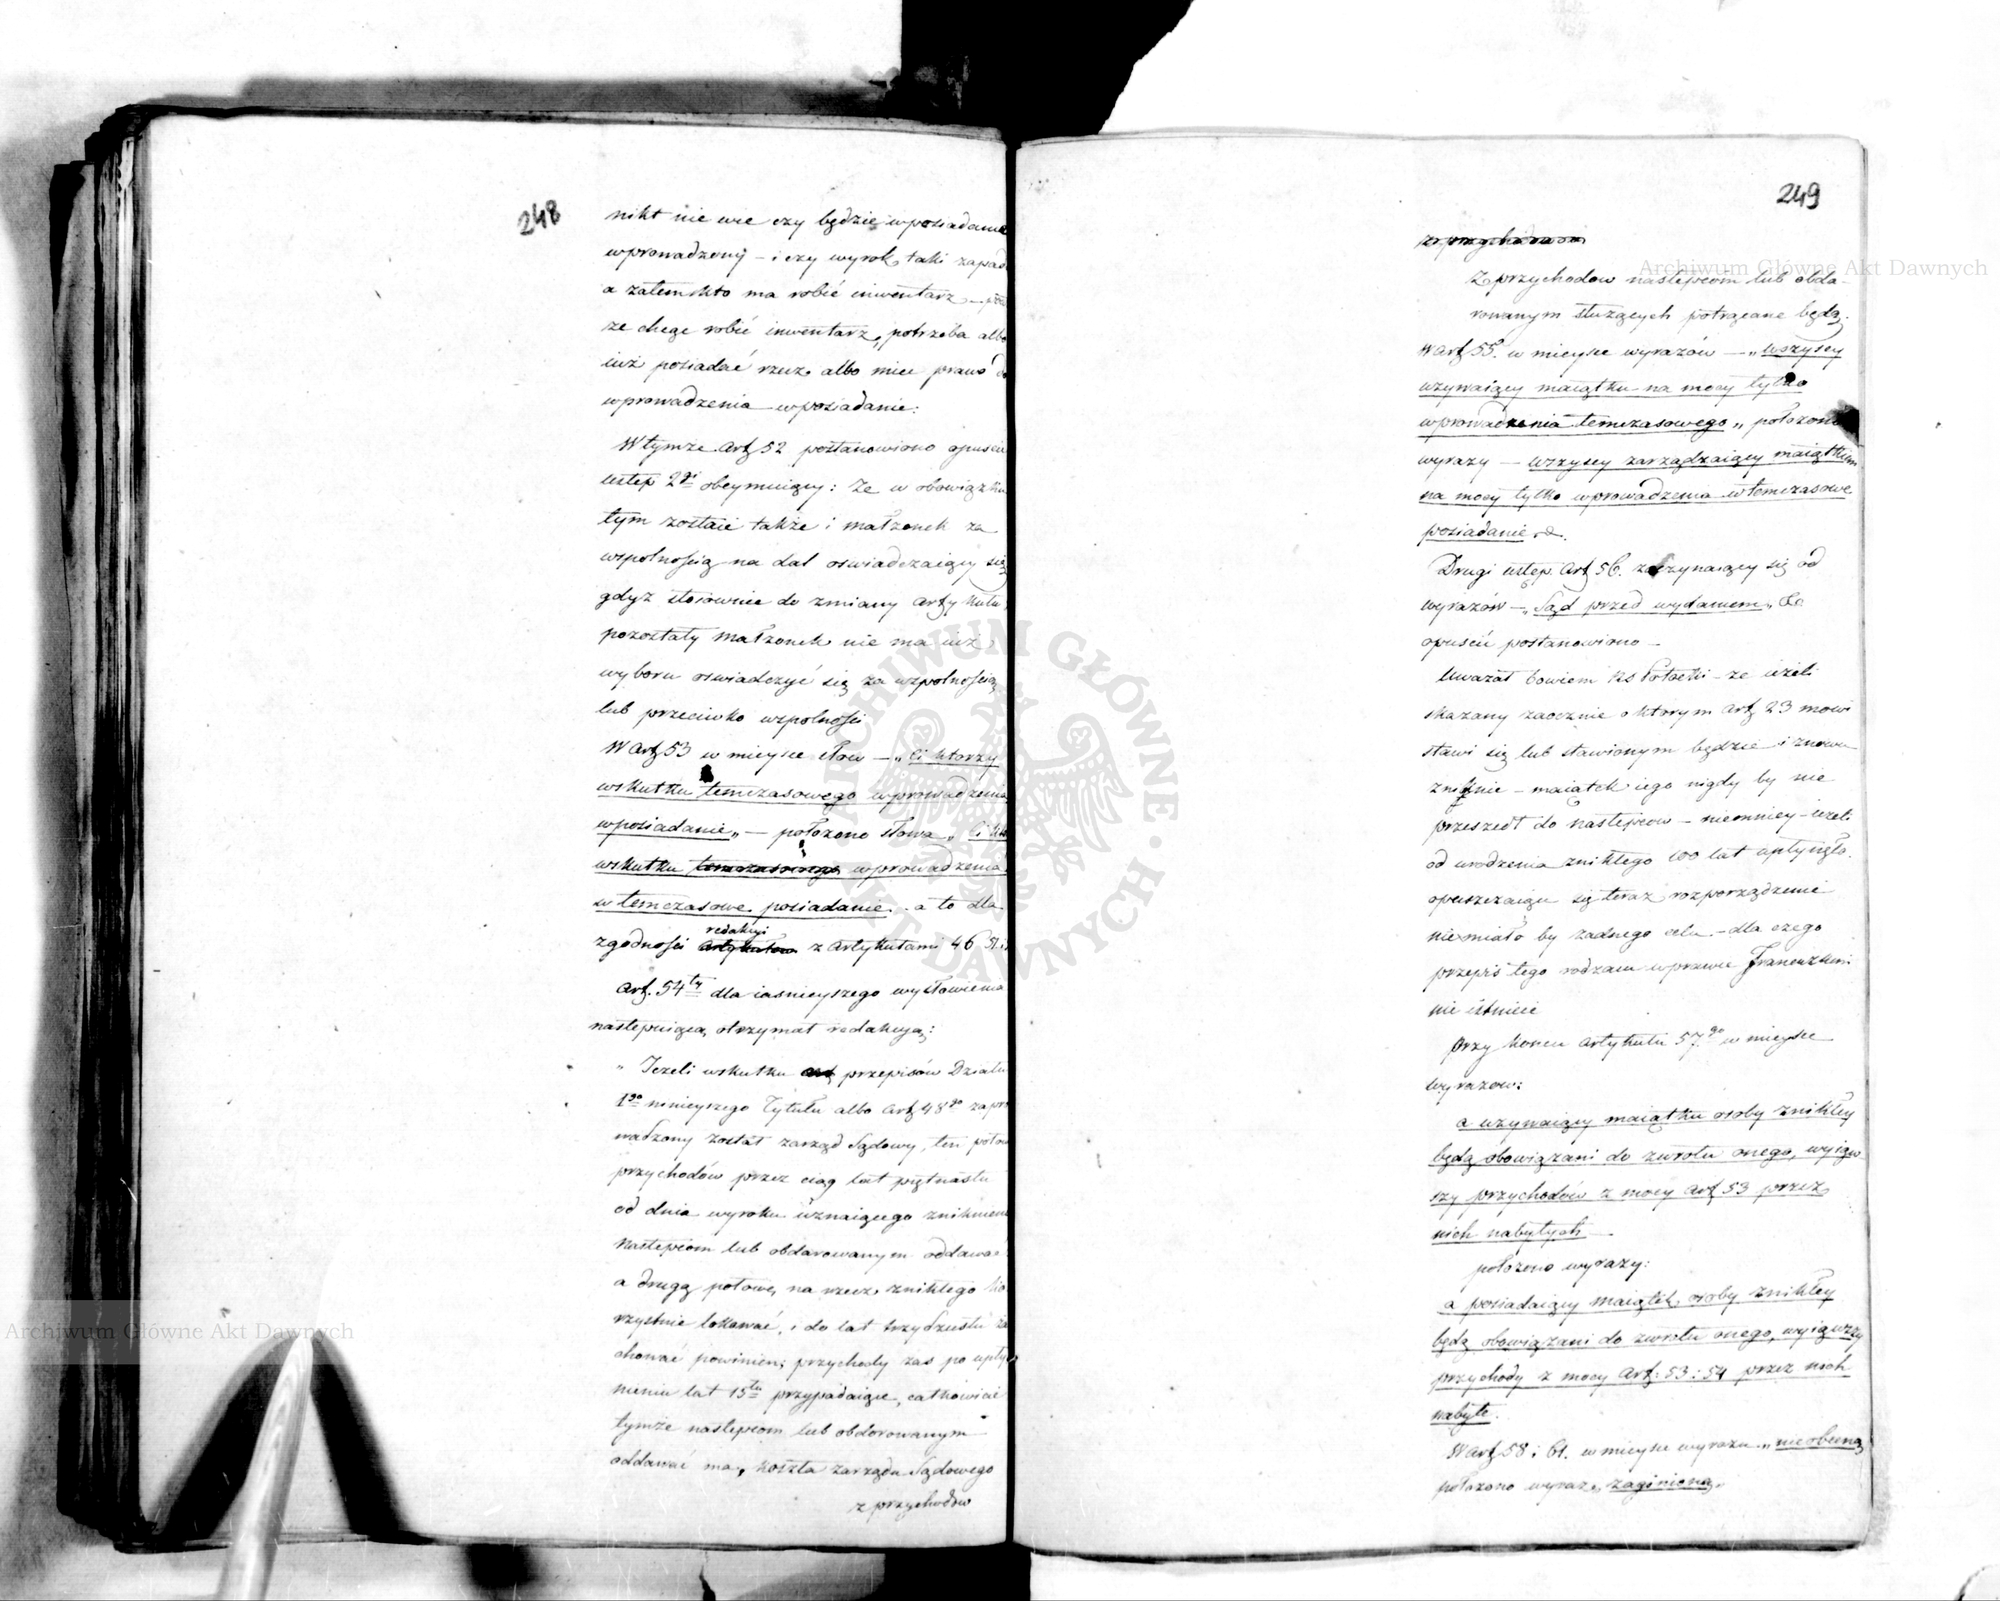 248
nikt nie wie czy będzie w posiadanie
wprowadzony – i czy wyrok taki zapad
a zatem kto ma robić inwentarz –
że chcąc robić inwentarz, potrzeba albo
iuż posiadać rzecz albo mieć prawo
wprowadzenia w posiadanie:
W tymże art 52 postanowiono opuścić
ustęp 2gi obeymuiący: że w obowiązku
tym zostaie także i małżonek za
wspólnością na dal oświadczaiący się
gdyż stosownie do zmiany artykułu
pozostały małżonek nie ma iuż
wyboru oświadczyć się za wspólnością
lub przeciwko wspólności
W art 53 w mieysce słow – „Ci ktorzy
wskutku temczasowego wprowadzenia
w posiadanie„ – położono słowa „Ci
wskutku temczasowego wprowadzenia
w temczasowe posiadanie. a to dla
redakcyi
zgodności artykułow z artykułami 46 51.
Art. 54ty dla iaśnieyszego wysłowienia
następuiącą otrzymał redakcyą:
„Jeżeli wskutku art przepisów Działu
1go ninieyszego Tytułu albo art 48go zapro
wadzony został zarząd Sądowy, ten połow
przychodów przez ciąg lat piętnastu
od dnia wyroku uznaiącego zniknien
następcom lub obdarowanym oddawać
a drugą połowę na rzecz znikłego ko
rzystnie lokować, i do lat trzydziestu za
chować powinien; przychody zaś po upły
nieniu lat 15tu przypadaiące, całkowicie
tymże następcom lub obdarowanym
oddawać ma, koszta zarządu Sądowego
z przychodów
249
z przychodów
Z przychodow następcom lub obda-
rowanym służących potrącane będą.
W art 55. w mieysce wyrazów – „wszyscy
używaiący maiątku na mocy tylko
wprowadzenia temczasowego„ położono
wyrazy – wszyscy zarządzaiący maiątkiem
na mocy tylko wprowadzenia w temczasowe
posiadanie &.
Drugi ustęp. art 56. zaczynaiący się od
wyrazów – „Sąd przed wydaniem„ &c
opuścić postanowiono –
Uważał bowiem Ks Potocki – że ieżeli
skazany zaocznie o ktorym art 23 mowi
stawi się lub stawionym będzie i znowu
zniknie – maiątek iego nigdy by nie
przeszedł do następcow – niemniey – ieżeli
od urodzenia znikłego 100 lat upłynęło.
opuszczaiące się teraz rozporządzenie
nie miało by żadnego celu – dla czego
przepis tego rodzaiu w prawie Francuzkim
nie istnieie
przy końcu artykułu 57go w mieysce
wyrazow:
a używaiący maiątku osoby znikłey
będą obowiązani do zwrotu onego, wyiąw
szy przychodów z mocy art 53 przez
nich nabytych –
położono wyrazy:
a posiadaiący maiątek osoby znikłey
będą obowiązani do zwrotu onego, wyiąwszy
przychody z mocy art: 53: 54 przez nich
nabyte.
W art 58 i 61. w mieysce wyrazu „nieobecną
położono wyraz „zaginioną„
Archiwum Główne Akt Dawnych
Archiwum Główne Akt Dawnych
ARCHIWUM GŁÓWNE AKT DAWNYCH